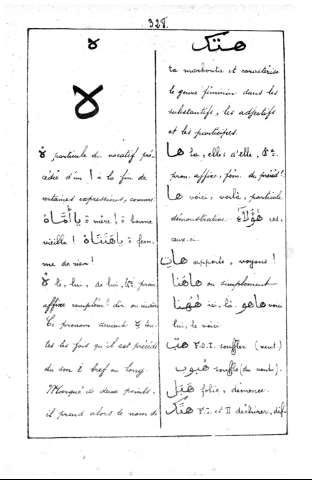 328.
ه
ه
ه particule du vocatif pré-
cédée d'un ا à la fin de
certaines expressions, comme
يا أُمَّاهْ ô mère! ô bonne
vieille! يا هَنَتَاهْ ô fem-
me de rien!
ه le, lui, de lui, pron.
affixe complém! dir. ou indir.
Ce pronom devient ه tou-
tes les fois qu'il est précédé
du son i bref ou long.
Marqué de deux points,
il prend alors le nom de
هتك
ta marbouta et caractérise
le genre féminin dans les
substantifs, les adjectifs
et les participes.
ها la, elles, d'elle,
pron. affixe, fém. du précéd!
ها voici, voilà, particule
démonstrative هؤلاء ces,
ceux-ci
هات apporte, voyons!
هاهنا ou simplement
ههنا ici, là هاهو vou
lui, le voici
هبّ F.O.I. souffler (vent)
هبوب souffle (du vent).
هبل folie, démence.
هتك F.i. et II déchirer, dif-